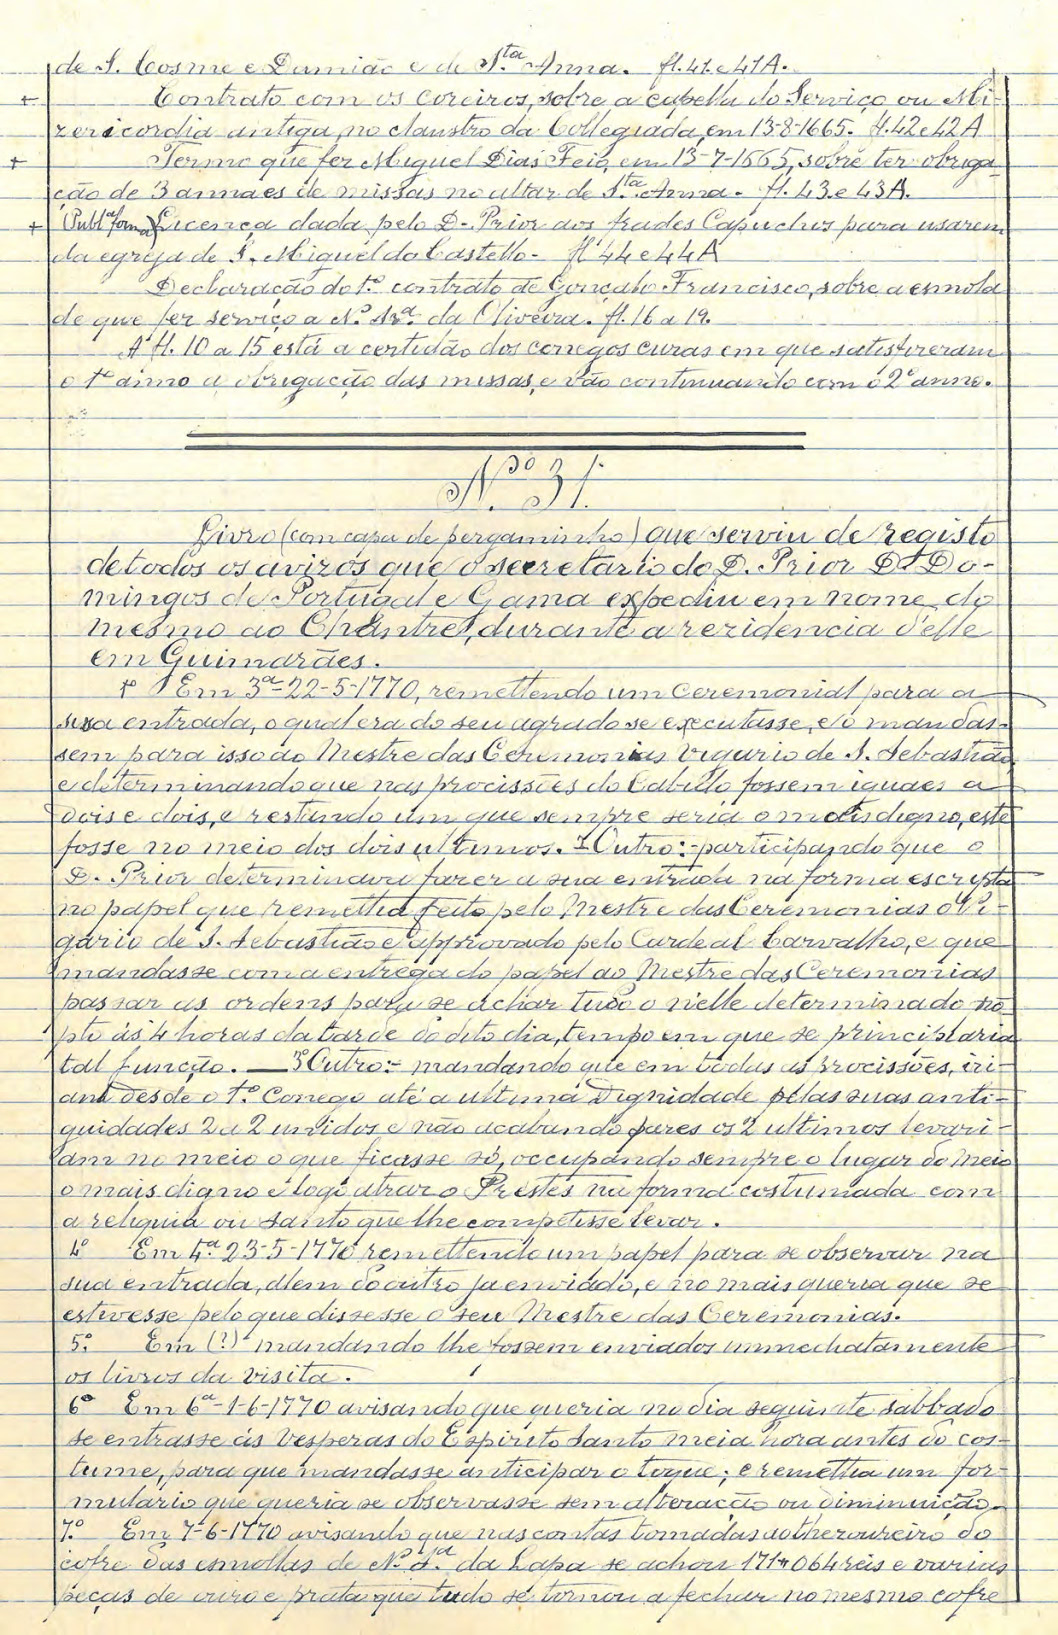 de S. Cosme e Damião e de S.ta Anna. fl. 41. e 41A.
+ Contrato com os coreiros, sobre a capella do Serviço ou Mi-
zericordia antiga, no claustro da Collegiada, em 13-8-1665. fl. 42 e 42A
+ Termo que fez Miguel Dias Feio, em 13-7-1665, sobre ter obriga-
ção de 3 annaes de missas no altar de S.ta Anna. fl. 43. e 43A.
+ (Publ.a forma) Licença dada pelo D. Prior aos frades Capuchos para usarem
da egreja de S. Miguel do Castello. fl 44 e 44A
Declaração do 1.º contrato de Gonçalo Francisco, sobre a esmola
de que fez serviço a N.ª Sr.ª da Oliveira. fl. 16 a 19.
A fl. 10 a 15 está a certidão dos conegos curas em que satisfizeram
o 1º anno a obrigação das missas, e vão continuando com o 2º anno.
N.º 31.
Livro (com capa de pergaminho) que serviu de registo
de todos os avizos que o secretario do D. Prior D. Do-
mingos de Portugal e Gama expediu em nome do
mesmo ao Chantre, durante a rezidencia d'elle
em Guimarães.
1º Em 3ª 22-5-1770, remettendo um Ceremonial para a
sua entrada, o qual era do seu agrado se executasse, e o mandas-
sem para isso ao Mestre das Ceremonias Vigario de S. Sebastião
e determinando que nas procissões do Cabido fossem iguaes a
dois e dois, e restando um que sempre seria o mais digno, este
fosse no meio dos dois ultimos. 2º Outro:- participando que o
D. Prior determinava fazer a sua entrada na forma escripta
no papel que remettia feito pelo Mestre das Ceremonias o Vi-
gario de S. Sebastião e approvado pelo Cardeal Carvalho, e que
mandasse com a entrega do papel ao Mestre das Ceremonias
passar as ordens para se achar tudo o n'elle determinado prom-
pto ás 4 horas da tarde do dito dia, tempo em que se principiaria
tal função. — 3º Outro:- mandando que em todas as procissões, iri-
am desde o 1.º Conego até a ultima Dignidade pelas suas anti-
guidades 2 a 2 unidos e não acabando pares os 2 ultimos levari-
am no meio o que ficasse só, occupando sempre o lugar do meio
o mais digno e logo atraz o Prestes na forma costumada com
a reliquia ou santo que lhe competisse levar.
4º Em 4ª 23-5-1770 remettendo um papel para se observar na
sua entrada, alem do outro ja enviado, e no mais queria que se
estivesse pelo que dissesse o seu Mestre das Ceremonias.
5º Em (?) mandando lhe fossem enviados immediatamente
os livros da visita.
6º Em 6ª 1-6-1770 avisando que queria no dia seguinte sabbado
se entrasse ás Vesperas do Espirito Santo meia hora antes do cos-
tume, para que mandasse anticipar o toque; e remettia um for-
mulario que queria se observasse sem alteração ou diminuição.
7º Em 7-6-1770 avisando que nas contas tomadas ao thezoureiro do
cofre das esmollas de N.ª S.ª da Lapa se achou 171$064 réis e varias
peças de ouro e prata que tudo se tornou a fechar no mesmo cofre